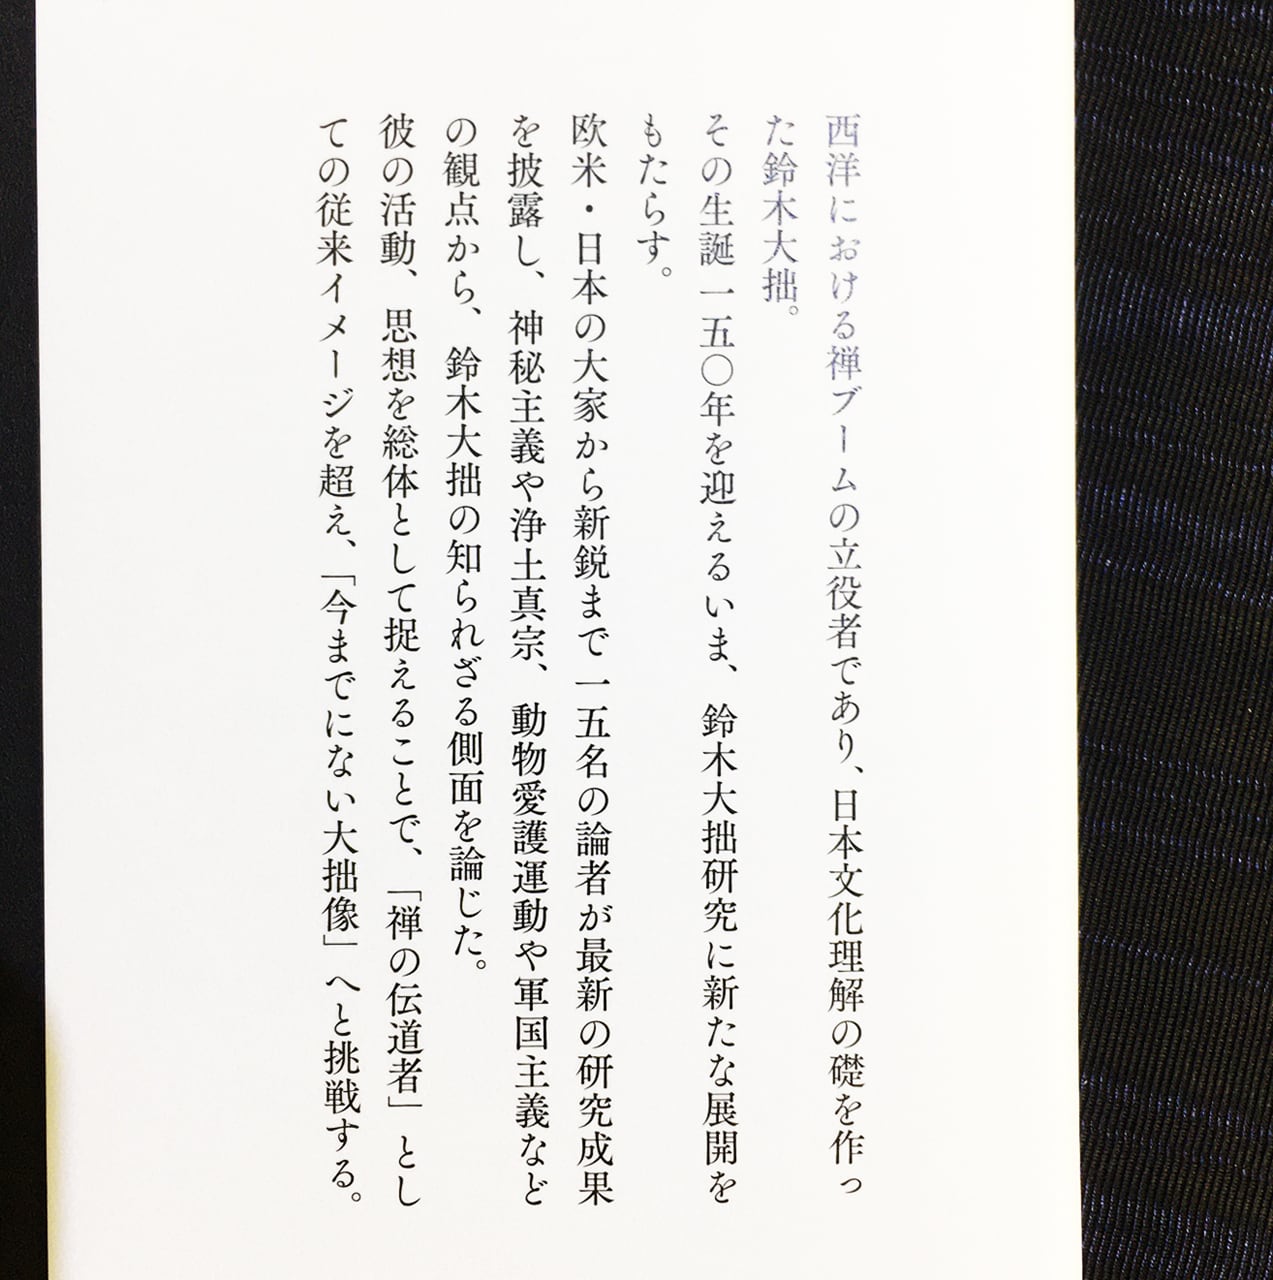 西洋における禅ブームの立役者であり、日本文化理解の礎を作っ
た鈴木大拙。
その生誕一五〇年を迎えるいま、鈴木大拙研究に新たな展開を
もたらす。
欧米・日本の大家から新鋭まで一五名の論者が最新の研究成果
を披露し、神秘主義や浄土真宗、動物愛護運動や軍国主義など
の観点から、鈴木大拙の知られざる側面を論じた。
彼の活動、思想を総体として捉えることで、「禅の伝道者」とし
ての従来イメージを超え、「今までにない大拙像」へと挑戦する。